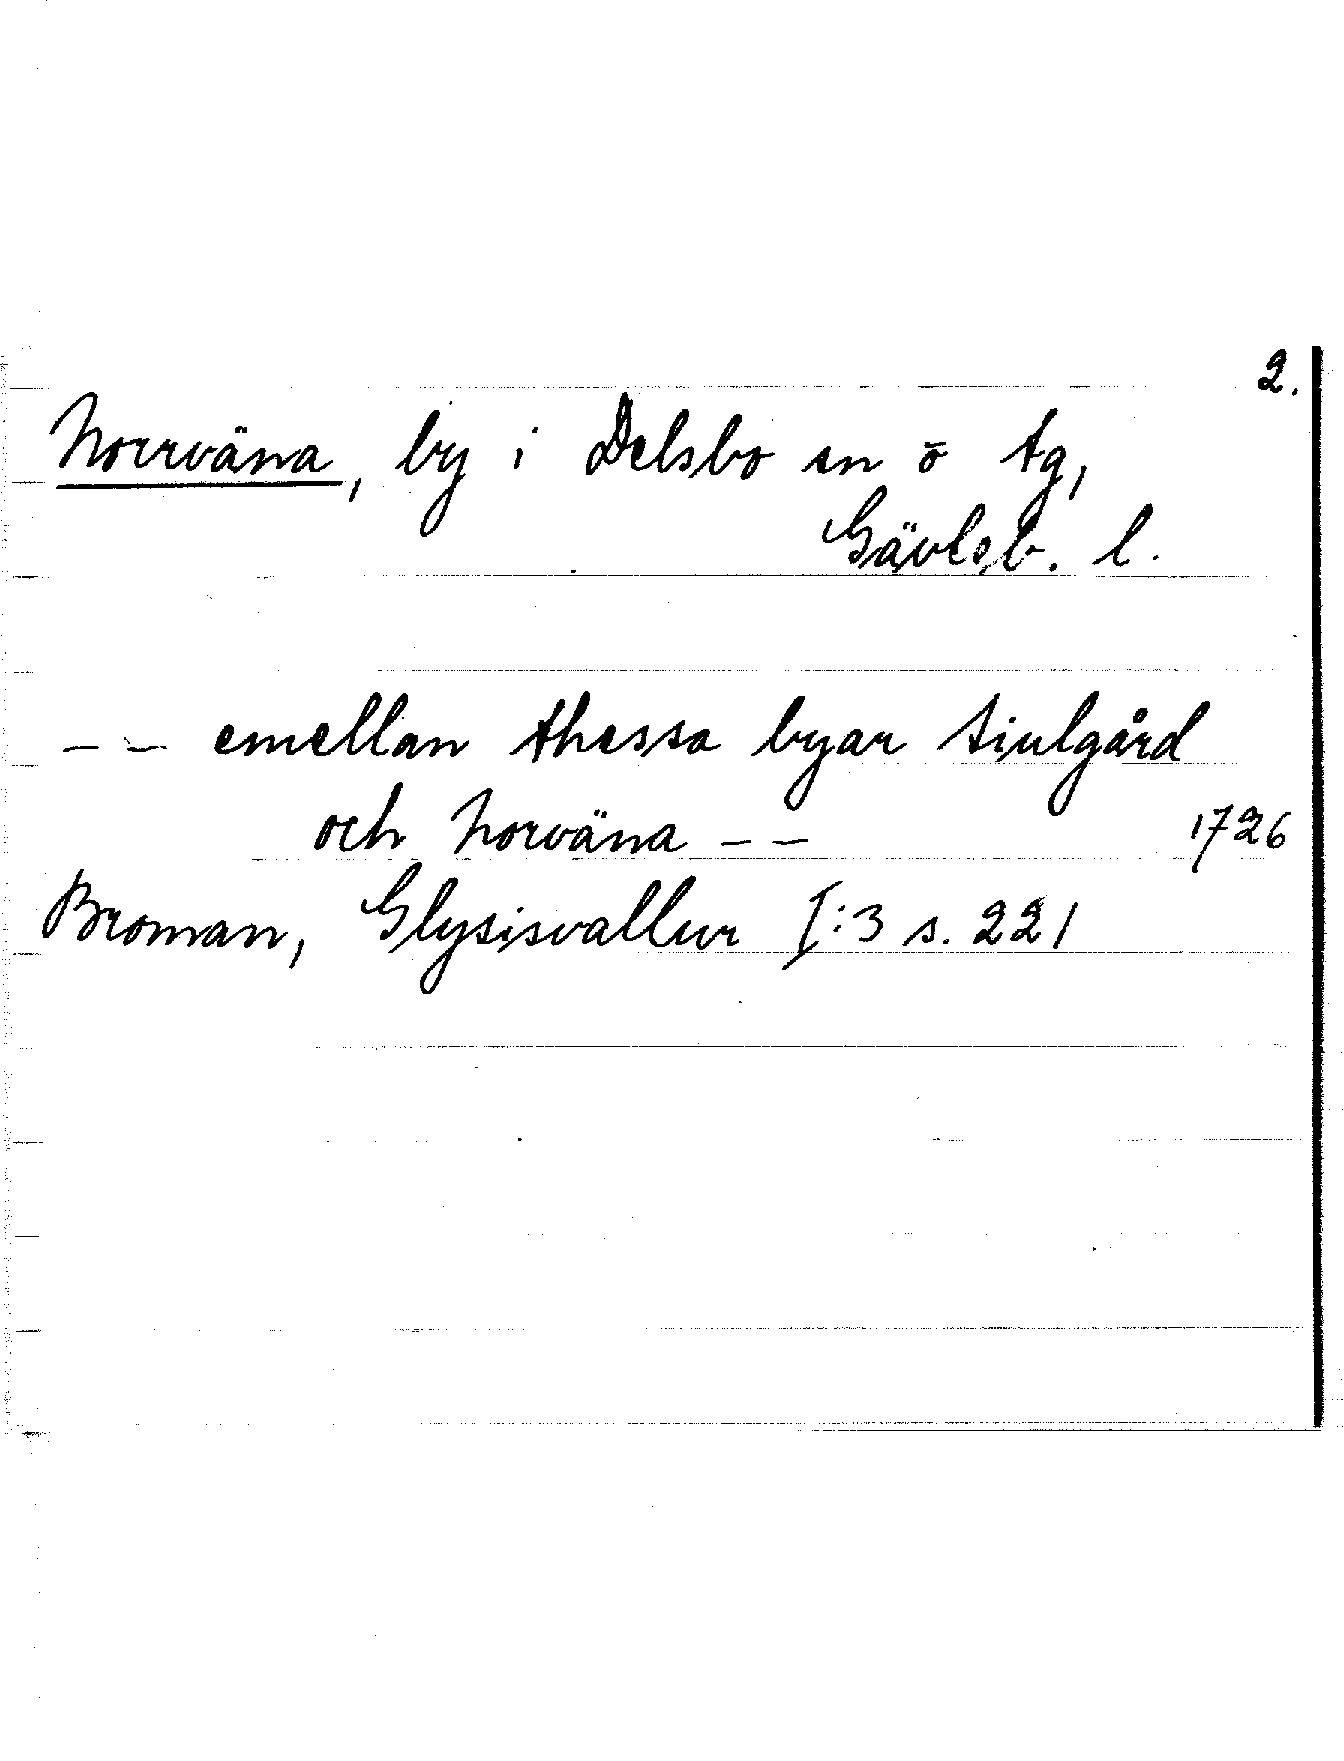 2.
Norrväna, by i Delsbo sn ö tg,
Gävleb. l.
-- emellan thessa byar Siulgård
och Norväna --
1726
Broman, Glysisvallur I:3 s. 221